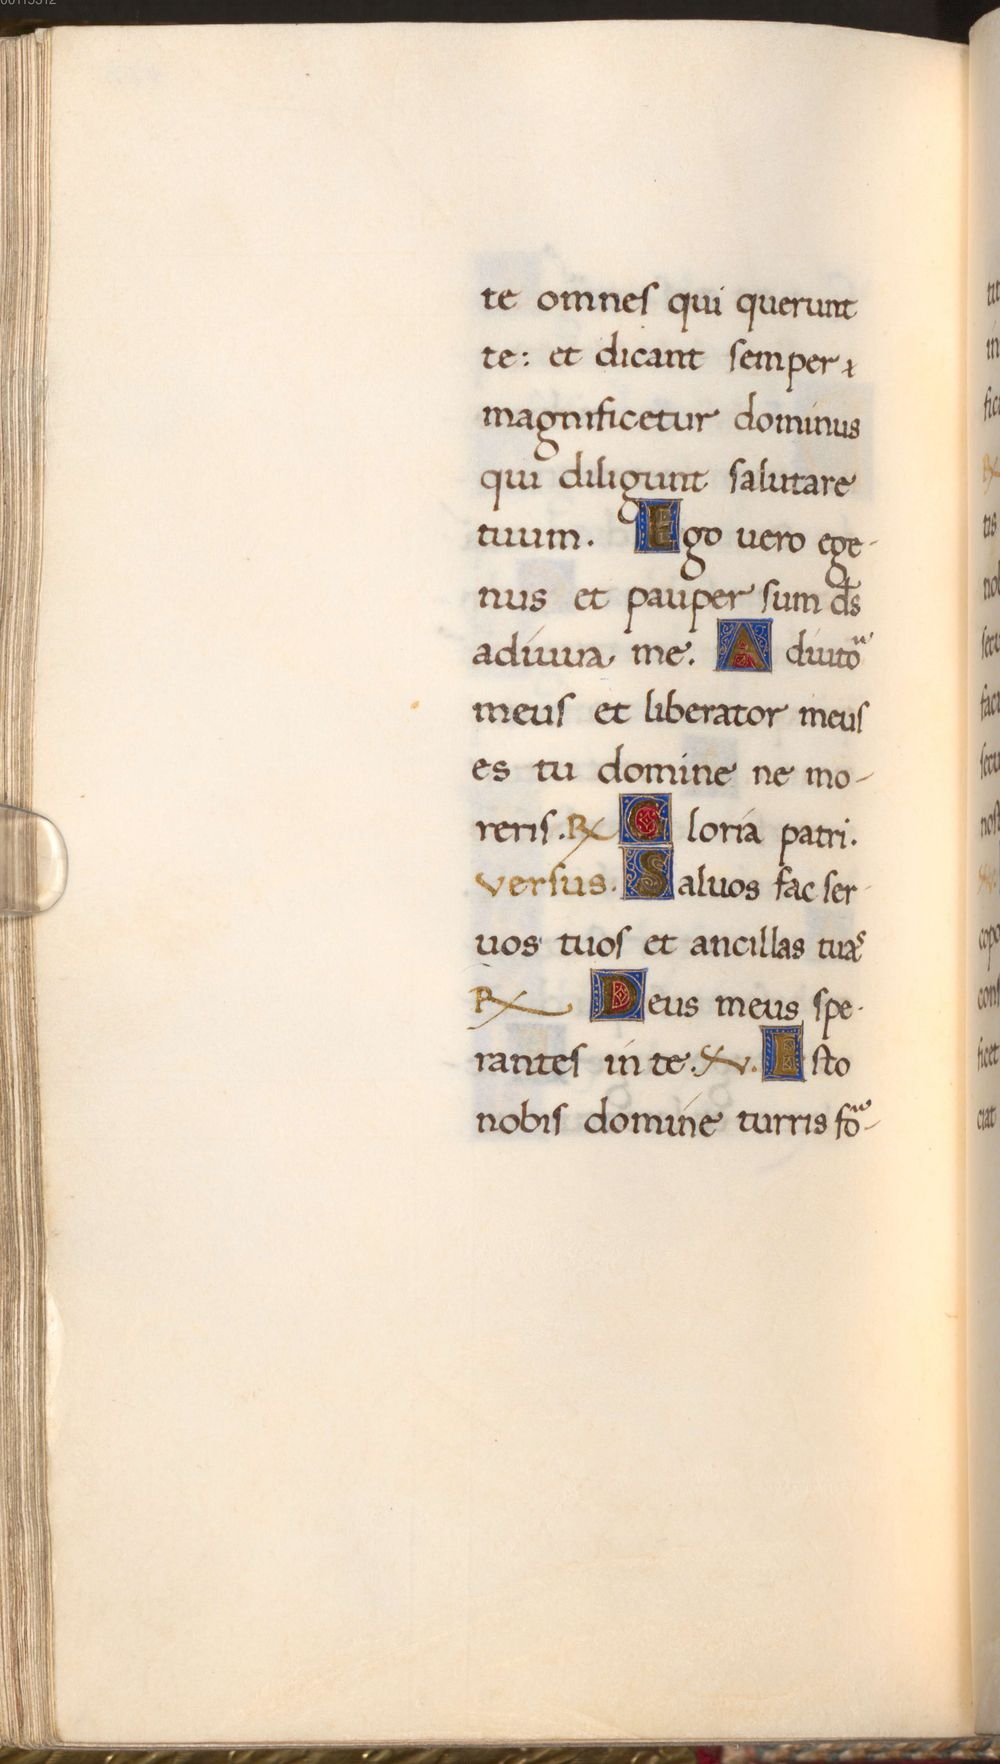 te omnes qui querunt
te: et dicant semper
magnificetur dominus
qui diligunt salutare
tuum. Ego uero ege-
nus et pauper sum ds̄
adiuua me. Adiuto᷑
meus et liberator meus
es tu domine ne mo-
reris. ℞ Gloria patri.
versus. Saluos fac ser-
uos tuos et ancillas tuas
℞ Deus meus spe-
rantes in te. ℣. Esto
nobis domine turris fo᷑-